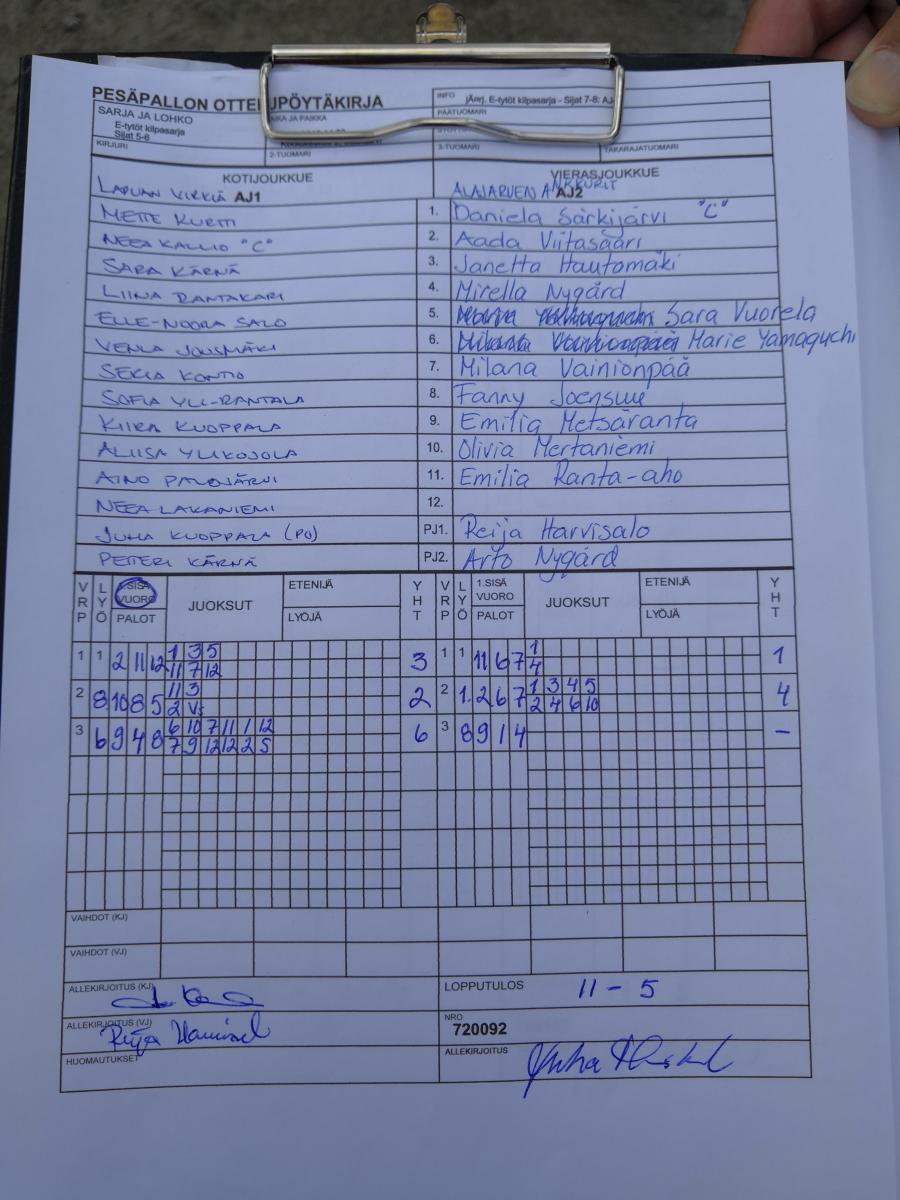 PESÄPALLON OTTE PÖYTÄKIRJA
INFO jÄnrj. E-tytöt kilpasarja - Sijat 7-8: AJ
SARJA JA LOHKO
AIKA JA PAIKKA
PÄÄTUOMARI
E-tytöt kilpasarja
Sijat 5-6
KIRJURI
2-TUOMARI
3-TUOMARI
TAKARAJATUOMARI
KOTIJOUKKUE VIERASJOUKKUE
LAPUAN VIRKIÄ AJ1 ALAJÄRVEN ANKKURIT AJ2
METTE KURTTI 1. Daniela Särkijärvi "C"
NEEA KALLIO "C" 2. Aada Viitasaari
SARA KÄRNÄ 3. Janetta Hautomäki
LIINA RANTAKARI 4. Mirella Nygård
ELLE-NOORA SALO 5. Sara Vuorela
VENLA JOUSMÄKI 6. Marie Yamaguchi
SEKIA KONTIO 7. Milana Vainionpää
SOFIA YLI-RANTALA 8. Fanny Joensuu
KIIRA KUOPPALA 9. Emilia Metsäranta
ALIISA YLIKOJOLA 10. Olivia Mertaniemi
AINO PALOJÄRVI 11. Emilia Ranta-aho
NEEA LAKANIEMI 12.
JUHA KUOPPALA (PJ) PJ1. Reija Harvisalo
PETTERI KÄRNÄ PJ2. Arto Nygård
VRP LYÖ 1.SISÄ VUORO PALOT JUOKSUT ETENIJÄ LYÖJÄ YHT VRP LYÖ 1.SISÄ VUORO PALOT JUOKSUT ETENIJÄ LYÖJÄ YHT
1 1 2 11 12 1 3 5 3 1 1 11 6 7 1 1
11 7 12 4
2 8 10 8 5 11 3 2 2 1. 2 6 7 1 3 4 5 4
2 V 2 4 6 10
3 6 9 4 8 6 10 7 11 1 12 6 3 8 9 1 4 –
7 9 12 12 2 5
VAIHDOT (KJ)
VAIHDOT (VJ)
ALLEKIRJOITUS (KJ) LOPPUTULOS 11 - 5
ALLEKIRJOITUS (VJ) Reija NRO
720092
HUOMAUTUKSET ALLEKIRJOITUS Juha